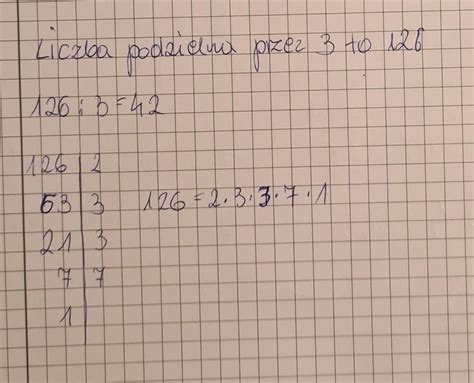 Liczba podzielna przez 3 to 126
126 : 3 = 42
126 | 2
63 | 3 126 = 2 · 3 · 3 · 7 · 1
21 | 3
7 | 7
1 |